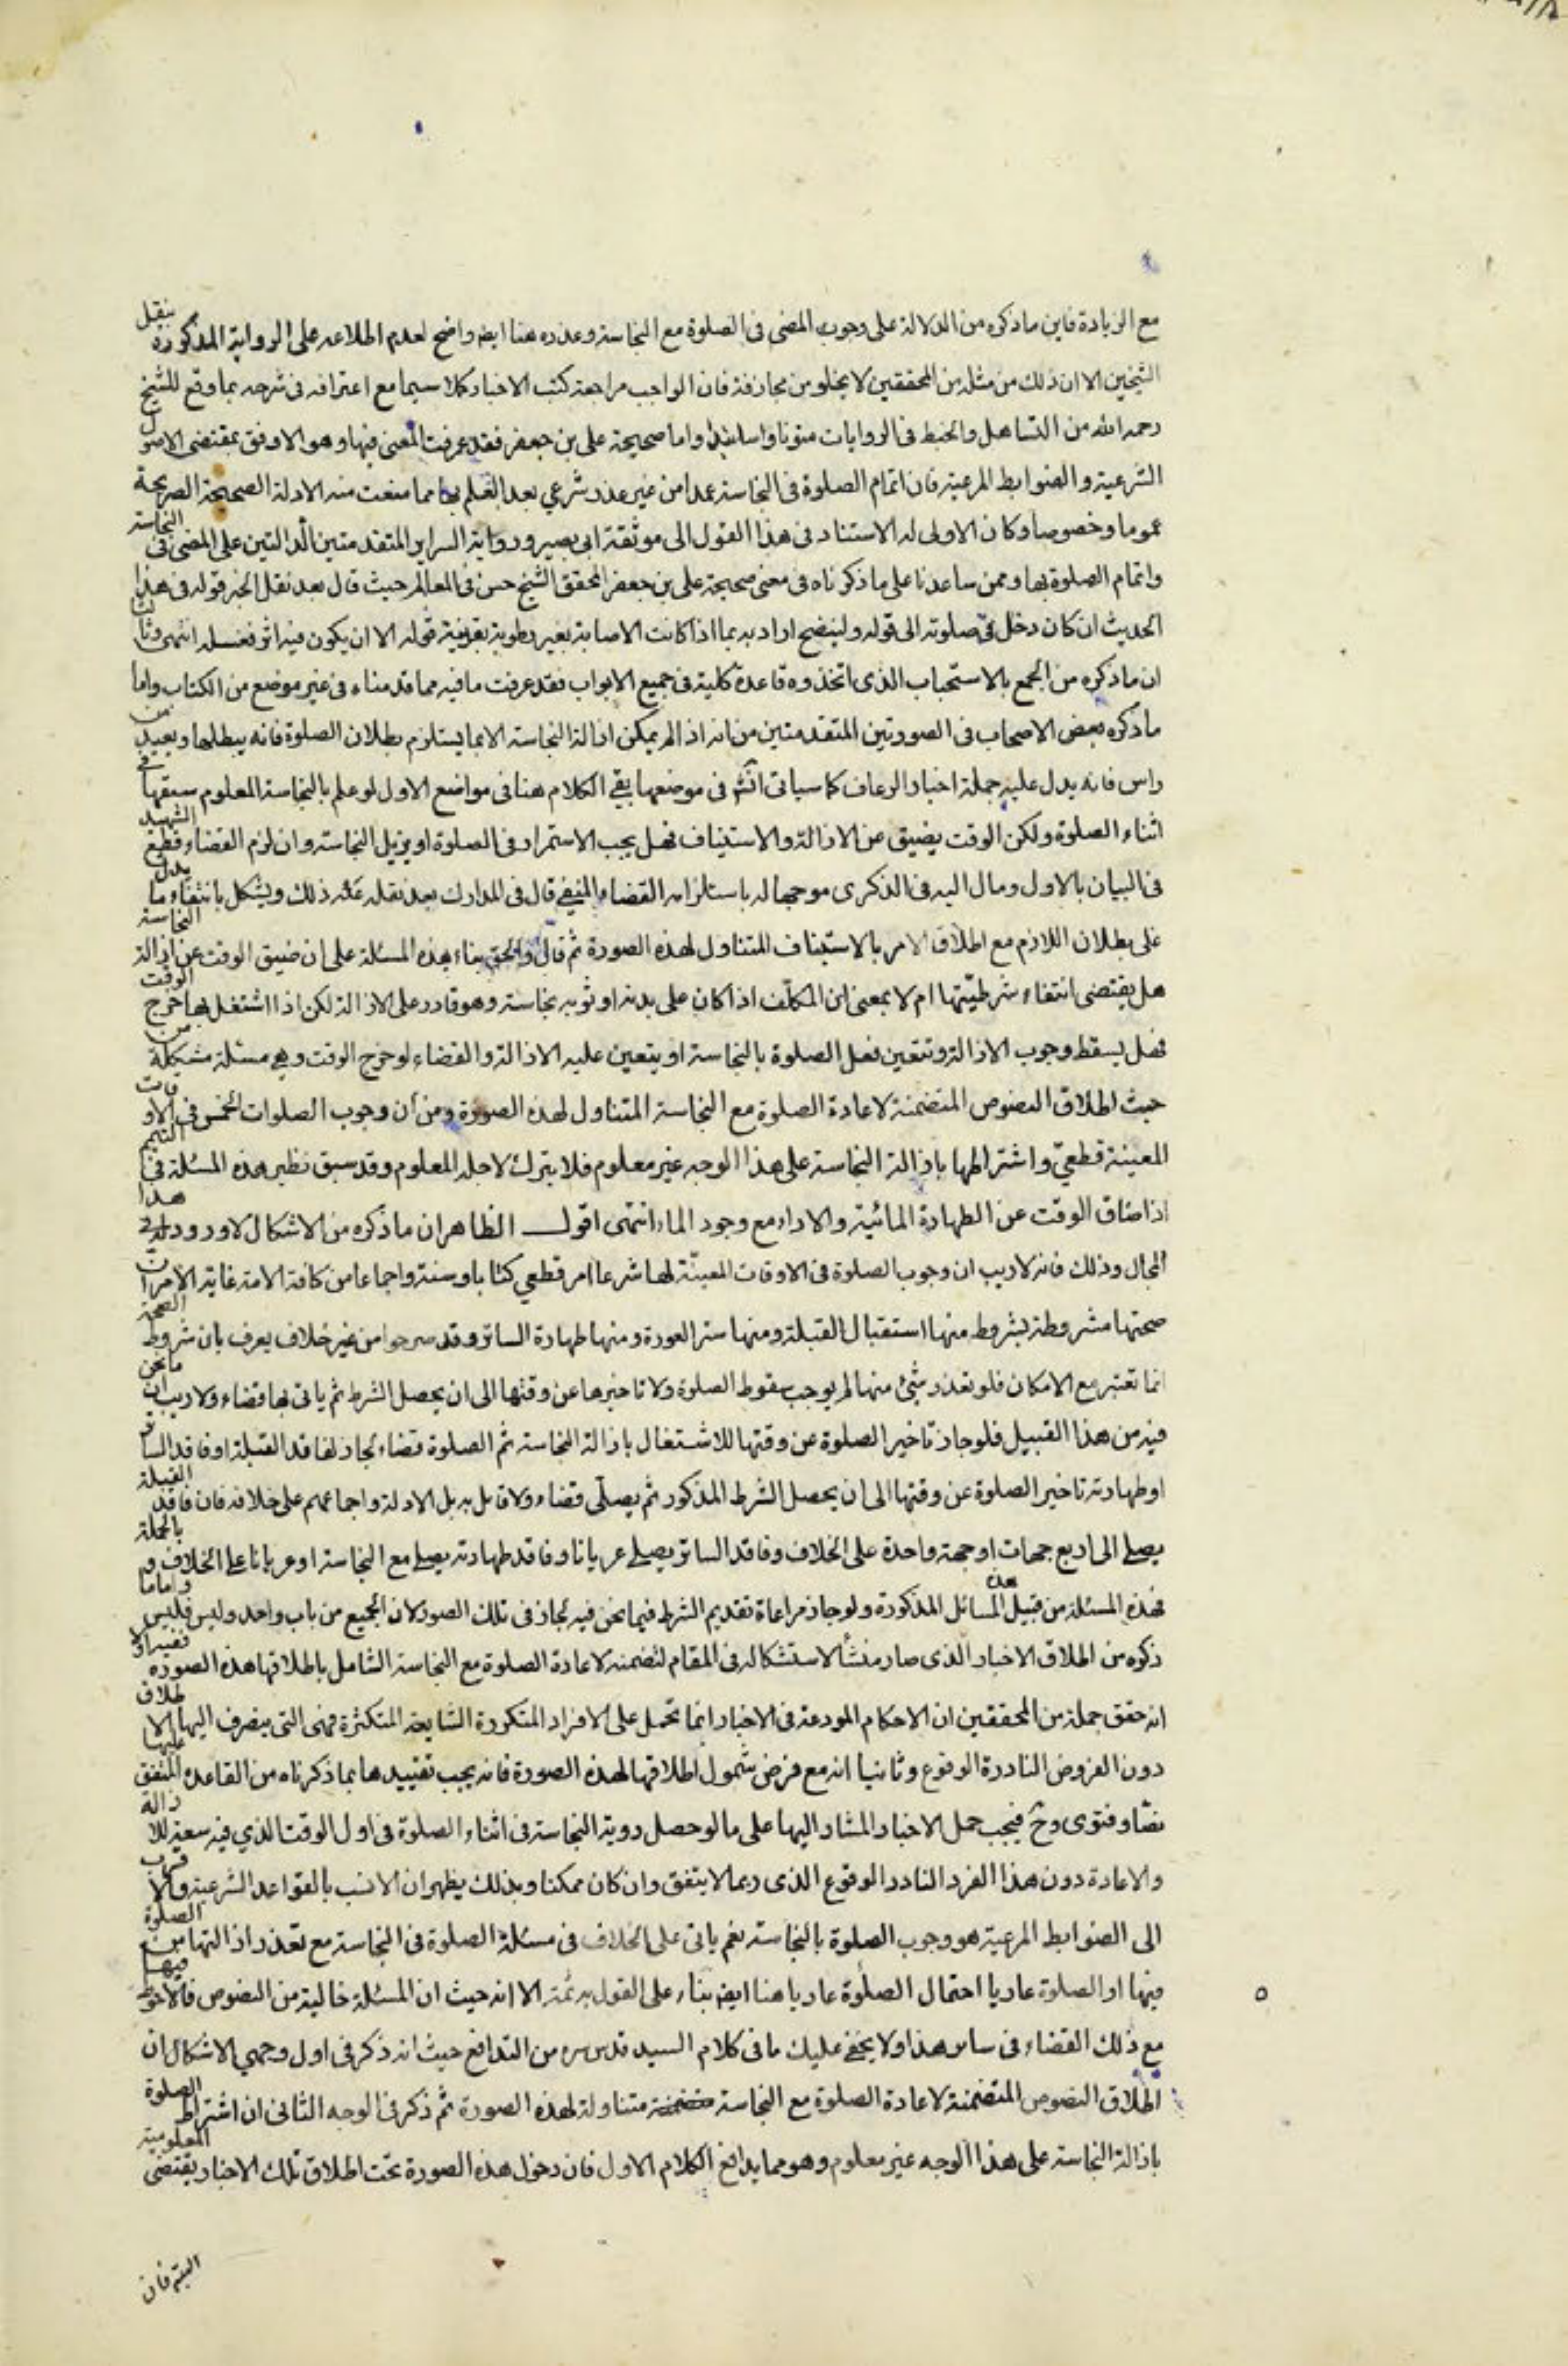 مع الزيادة فاين ما ذكره من الدلالة على وجوب المضى فى الصلوة مع النجاسة وعذره هنا ايض واضح لعدم اطلاعه على الرواية المذكورة بنقل
الشيخين الا ان ذلك من مثله من المحققين لا يخلو من مجازفة فان الواجب مراجعة كتب الاخبار كلا سيما مع اعترافه فى شرحه بما وقع للشيخ
رحمه الله من التساهل والخبط فى الروايات متونا واسانيد واما صحيحة على بن جعفر فقد عرفت المعنى فيها وهو الاوفق بمقتضى الاصول
الشرعية والضوابط المرعية فان اتمام الصلوة فى النجاسة عمدا من غير عذر شرعي بعد العلم بها مما منعت منه الادلة الصحيحة الصريحة
عموما وخصوصا وكان الاولى له الاستناد فى هذا القول الى موثقة ابى بصير ورواية السراير المتقدمتين الدالتين على المضى فى النجاسة
واتمام الصلوة بها وممن ساعدنا على ما ذكرناه فى معنى صحيحة على بن جعفر المحقق الشيخ حسن فى المعالم حيث قال بعد نقل الخبر قوله فى هذا
الحديث ان كان دخل فى صلوته الى قوله ولينضح اراد به بما اذا كانت الاصابة بغير رطوبة بقرينة قوله الا ان يكون فيه اثر فغسله انتهى وثالثا
ان ما ذكره من الجمع بالاستحباب الذى اتخذوه قاعدة كلية فى جميع الابواب فقد عرفت ما فيه مما قدمناه فى غير موضع من الكتاب واما
ما ذكره بعض الاصحاب فى الصورتين المتقدمتين من انه اذا لم يمكن ازالة النجاسة الا بما يستلزم بطلان الصلوة فانه يبطلها ويعيد من
راس فانه يدل عليه جملة اخبار الرعاف كما سياتى انش فى موضعها بقي الكلام هنا فى مواضع الاول لو علم بالنجاسة المعلوم سبقها فى
اثناء الصلوة ولكن الوقت يضيق عن الازالة والاستيناف فهل يجب الاستمرار فى الصلوة او يزيل النجاسة وان لزم القضاء قطع الشهيد
فى البيان بالاول ومال اليه فى الذكرى موجها له باستلزامه القضاء المنفي قال فى المدارك بعد نقله عنه ذلك ويشكل بانتفاء ما يدل
على بطلان اللازم مع اطلاق الامر بالاستيناف المتناول لهذه الصورة ثم قال والحق بناء هذه المسئلة على ان ضيق الوقت عن ازالة النجاسة
هل يقتضى انتفاء شرطيتها ام لا بمعنى ان المكلف اذا كان على بدنه او ثوبه نجاسة وهو قادر على الازالة لكن اذا اشتغل بها خرج الوقت
فهل يسقط وجوب الازالة وتتعين فعل الصلوة بالنجاسة او يتعين عليه الازالة والقضاء لو خرج الوقت وهي مسئلة مشكلة من
حيث اطلاق النصوص المتضمنة لاعادة الصلوة مع النجاسة المتناول لهذه الصورة ومن ان وجوب الصلوات الخمس فى الاوقات
المعينة قطعي واشتراطها بازالة النجاسة على هذا الوجه غير معلوم فلا يترك لاجله المعلوم وقد سبق نظير هذه المسئلة فى التيمم
اذا ضاق الوقت عن الطهارة المائية والاداء مع وجود الماء انتهى اقول الظاهران ما ذكره من الاشكال لا ورود له فى هذا
المجال وذلك فانه لا ريب ان وجوب الصلوة فى الاوقات المعينة لها شرعا امر قطعي كتابا وسنة واجماعا من كافة الامة غاية الامر ان
صحتها مشروطة بشروط منها استقبال القبلة ومنها ستر العورة ومنها طهارة الساتر وقد صرحوا من غير خلاف يعرف بان شروط الصحة
انما تعتبر مع الامكان فلو تعذر شئ منها لم يوجب سقوط الصلوة ولا تاخيرها عن وقتها الى ان يحصل الشرط ثم ياتى بها قضاء ولا ريب ان ما نحن
فيه من هذا القبيل فلو جاز تاخير الصلوة عن وقتها للاشتغال بازالة النجاسة ثم الصلوة قضاء لجاز لفاقد القبلة او فاقد الساتر
او طهارته تاخير الصلوة عن وقتها الى ان يحصل الشرط المذكور ثم يصلى قضاء ولا قائل به بل الادلة واجماعهم على خلافه فان فاقد القبلة
يصلي الى اربع جهات او جهة واحدة على الخلاف وفاقد الساتر يصلي عريانا وفاقد طهارته يصلي مع النجاسة او عريانا على الخلاف وبالجملة
فهذه المسئلة من قبيل هذه المسائل المذكورة ولو جاز مراعاة تقديم الشرط فيما نحن فيه لجاز فى تلك الصور لان الجميع من باب واحد وليس فليس واما ما
ذكره من اطلاق الاخبار الذى صار منشأ لاستشكاله فى المقام لتضمنه لاعادة الصلوة مع النجاسة الشامل باطلاقها هذه الصورة ففيه اولا
انه حقق جملة من المحققين ان الاحكام المودعة فى الاخبار انما تحمل على الافراد المتكررة الشايعة المتكثرة فهى التى ينصرف اليها الاطلاق
دون الفروض النادرة الوقوع وثانيا انه مع فرض شمول اطلاقها لهذه الصورة فانه يجب تقييدها بما ذكرناه من القاعدة المتفق عليها
نصا وفتوى وح فيجب حمل الاخبار المشار اليها على ما لو حصل رؤية النجاسة فى اثناء الصلوة فى اول الوقت الذي فيه سعة للازالة
والاعادة دون هذا الفرد النادر الوقوع الذى ربما لا يتفق وان كان ممكنا وبذلك يظهر ان الانسب بالقواعد الشرعية والاقرب
الى الضوابط المرعية هو وجوب الصلوة بالنجاسة نعم ياتى على الخلاف فى مسئلة الصلوة فى النجاسة مع تعذر ازالتها من الصلوة
فيها او الصلوة عاريا احتمال الصلوة عاريا هنا ايض بناء على القول به ثمة الا انه حيث ان المسئلة خالية من النصوص فالاحوط فيها
مع ذلك القضاء فى ساتر هذا ولا يخفى عليك ما فى كلام السيد قدس سره من التدافع حيث انه ذكر فى اول وجهي الاشكال ان
اطلاق النصوص المتضمنة لاعادة الصلوة مع النجاسة متناولة لهذه الصورة ثم ذكر فى الوجه الثانى ان اشتراط الصلوة
بازالة النجاسة على هذا الوجه غير معلوم وهو مما يدافع الكلام الاول فان دخول هذه الصورة تحت اطلاق تلك الاخبار يقتضى المعلومية
البتة فان